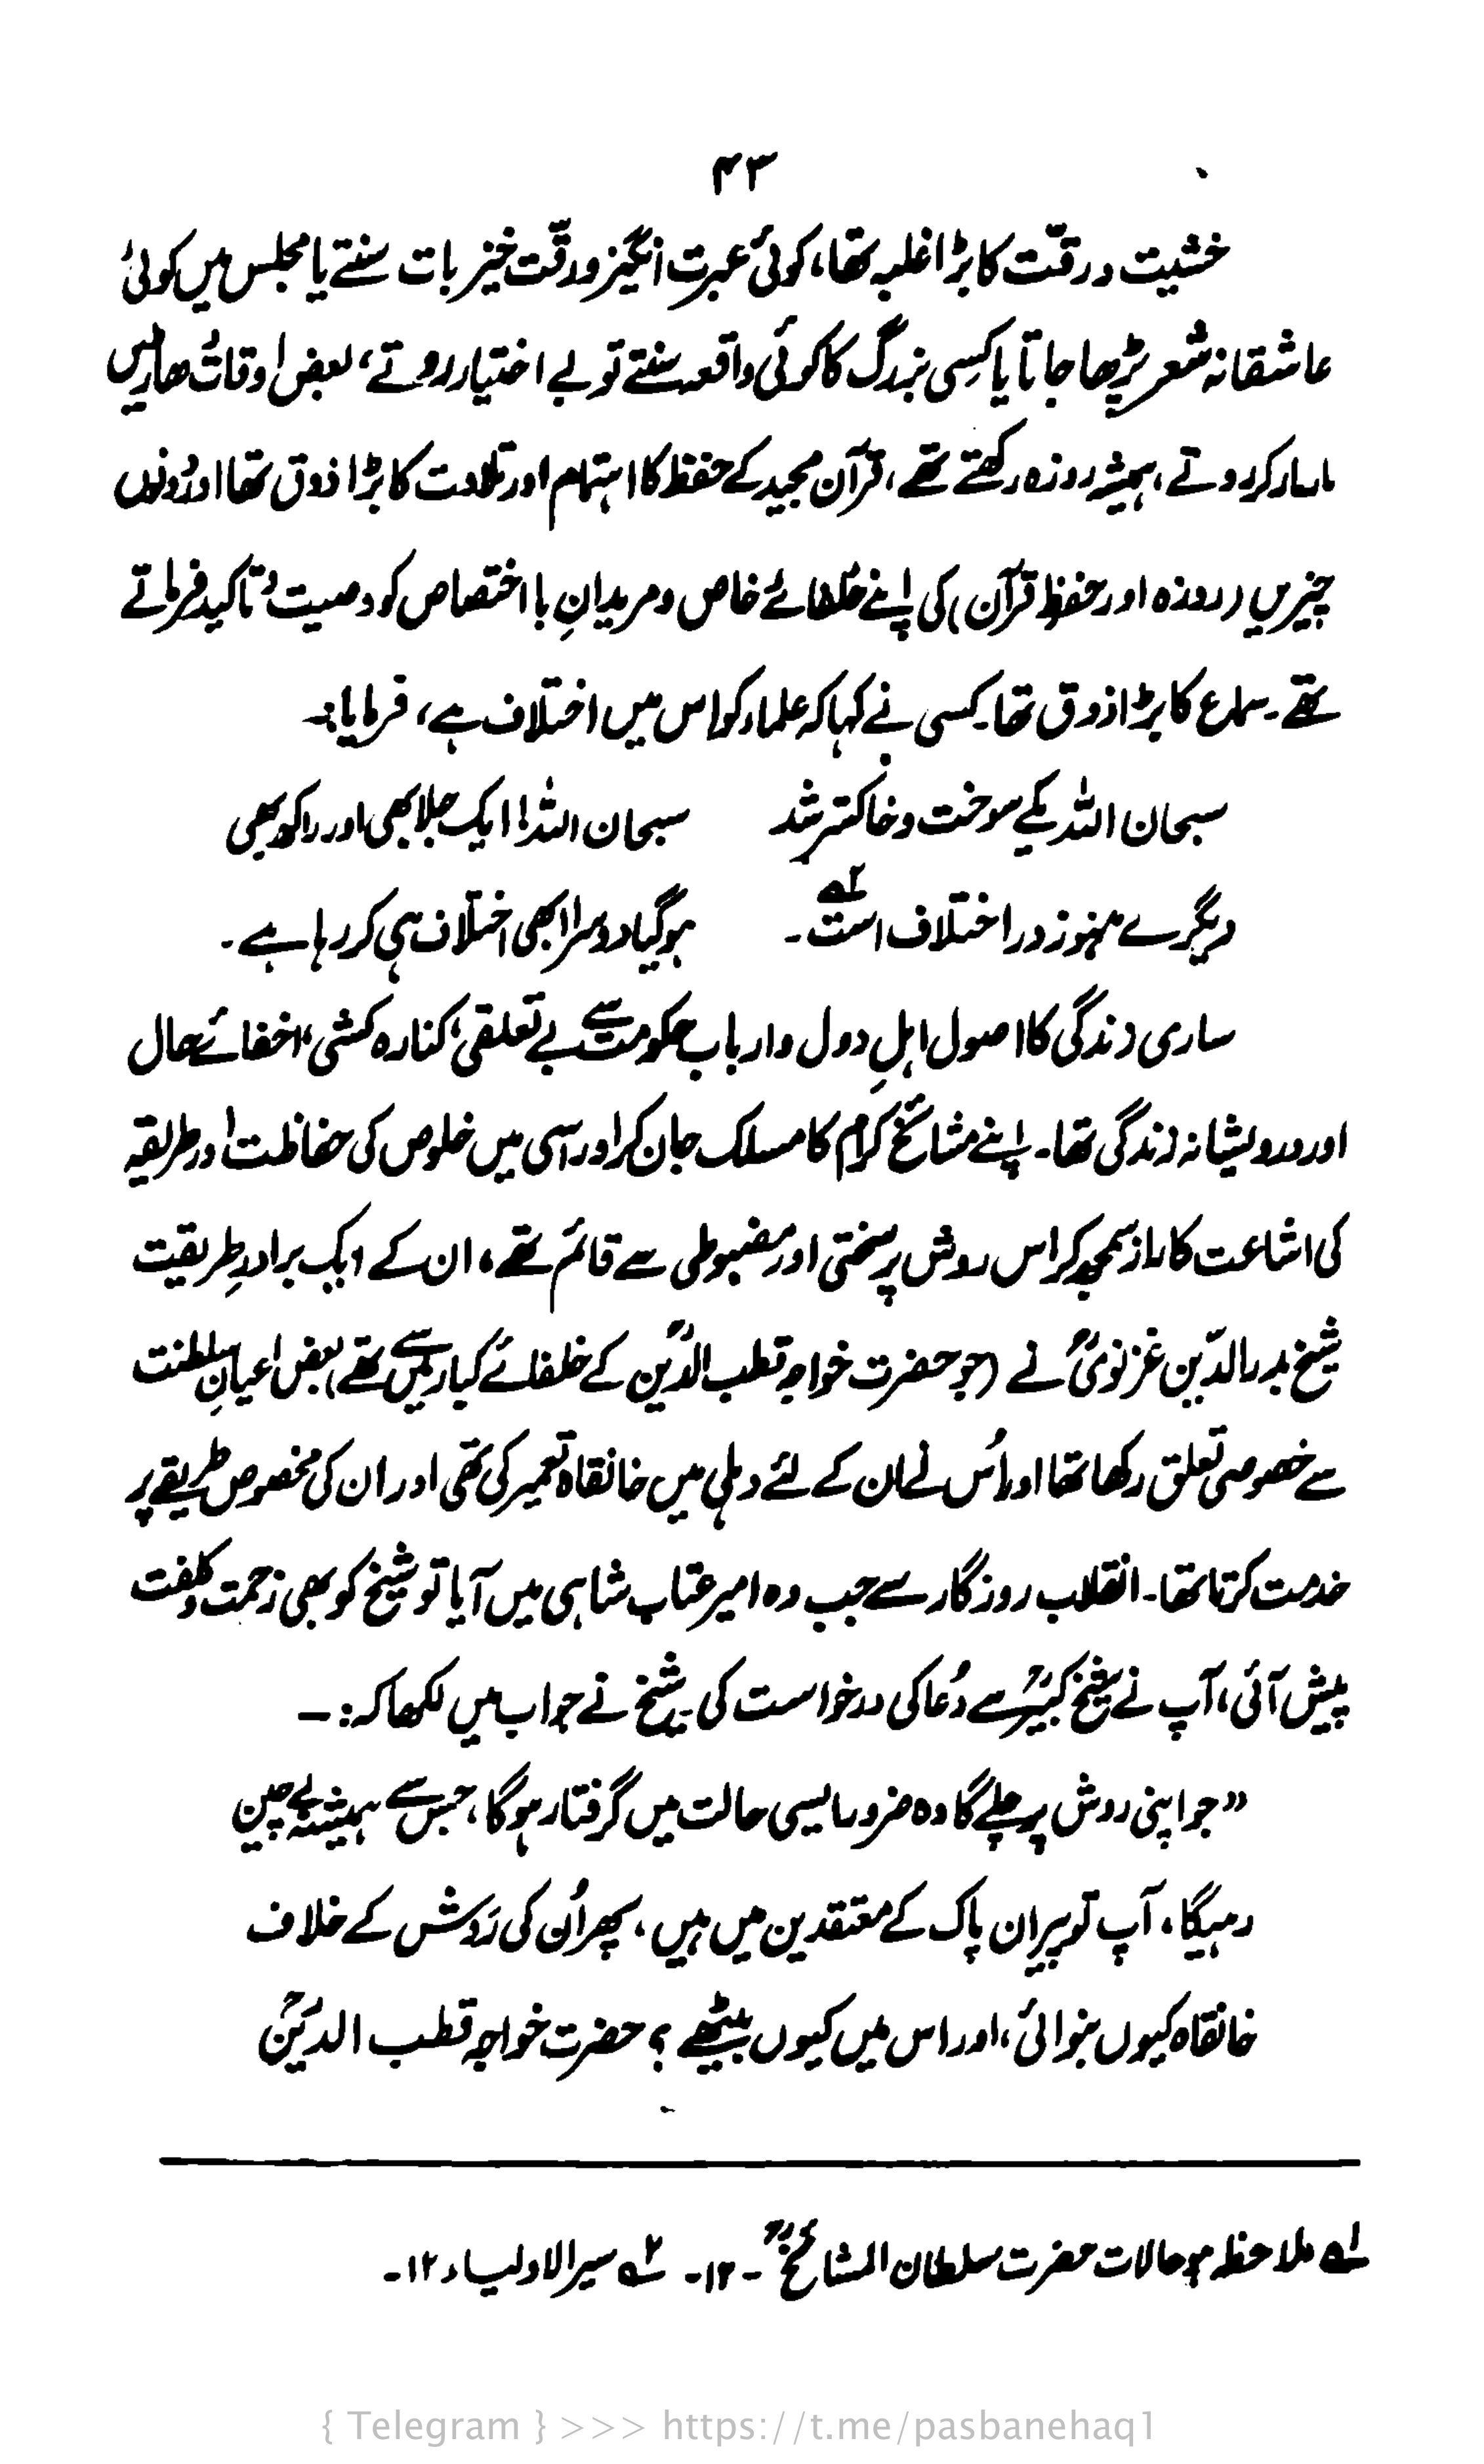 ۴۳
خشیت ورقّت کا بڑا غلبہ تھا، کوئی عبرت انگیز ورقّت خیز بات سنتے یا مجلس میں کوئی
عاشقانہ شعر پڑھا جاتا یا کسِی بزرگ کا کوئی واقعہ سنتے تو بے اختیار روتے، بعض اوقات دھاڑیں
مار مار کر روتے، ہمیشہ روزہ رکھتے تھے، قرآن مجید کے حفظ کا اہتمام اور تلاوت کا بڑا ذوق تھا اور دونوں
چیزیں (روزہ اور حفظِ قرآن) کی اپنے خلفائے خاص و مریدانِ با اختصاص کو وصیت و تاکید فرماتے
تھے۔ سماع کا بڑا ذوق تھا۔ کسی نے کہا کہ علماء کو اس میں اختلاف ہے، فرمایا:۔
سبحان اللہ یکے سوخت و خاکستر شد سبحان اللہ! ایک جلا بھی اور راکھ بھی
دیگرے ہنوز در اختلاف است۲ے۔ ہوگیا دوسرا ابھی اختلاف ہی کر رہا ہے۔
ساری زندگی کا اصول اہلِ دول و ارباب حکومت سے بے تعلقی، کنارہ کشی، اخفائے حال
اور درویشانہ زندگی تھا۔ اپنے مشائخ کرام کا مسلک جان کر اور اسی میں خلوص کی حفاظت اور طریقہ
کی اشاعت کا راز سمجھ کر اس روش پر سختی اور مضبوطی سے قائم تھے، ان کے ایک برادرِ طریقیت
شیخ بدر الدّین غزنویؒ نے (جو حضرت خواجہ قطب الدّینؒ کے خلفائے کبار میں سے تھے) بعض اعیانِ سلطنت
سے خصوصی تعلق رکھا تھا اور اُس نے ان کے لئے دہلی میں خانقاہ تعمیر کی تھی اور ان کی مخصوص طریقے پر
خدمت کرتا تھا۔ انقلاب روزگار سے جب وہ امیر عتاب شاہی میں آیا تو شیخ کو بھی زحمت و کلفت
پیش آئی، آپ نے شیخ کبیرؒ سے دُعا کی درخواست کی۔ شیخ نے جواب میں لکھا کہ:۔
"جو اپنی روش پر چلے گا وہ ضرور ایسی حالت میں گرفتار ہوگا، جس سے ہمیشہ بے چین
رہیگا، آپ تو پیران پاک کے معتقدین میں ہیں، پھر اُن کی رَوِش کے خلاف
خانقاہ کیوں بنوائی، اور اس میں کیوں بیٹھے؟ حضرت خواجہ قطب الدینؒ
۱ے ملاحظہ ہو حالات حضرت سلطان المشائخؒ۔ ۱۲۔ ۲ے سیر الاولیاء ۱۲۔
{ Telegram } >>> https://t.me/pasbanehaq1